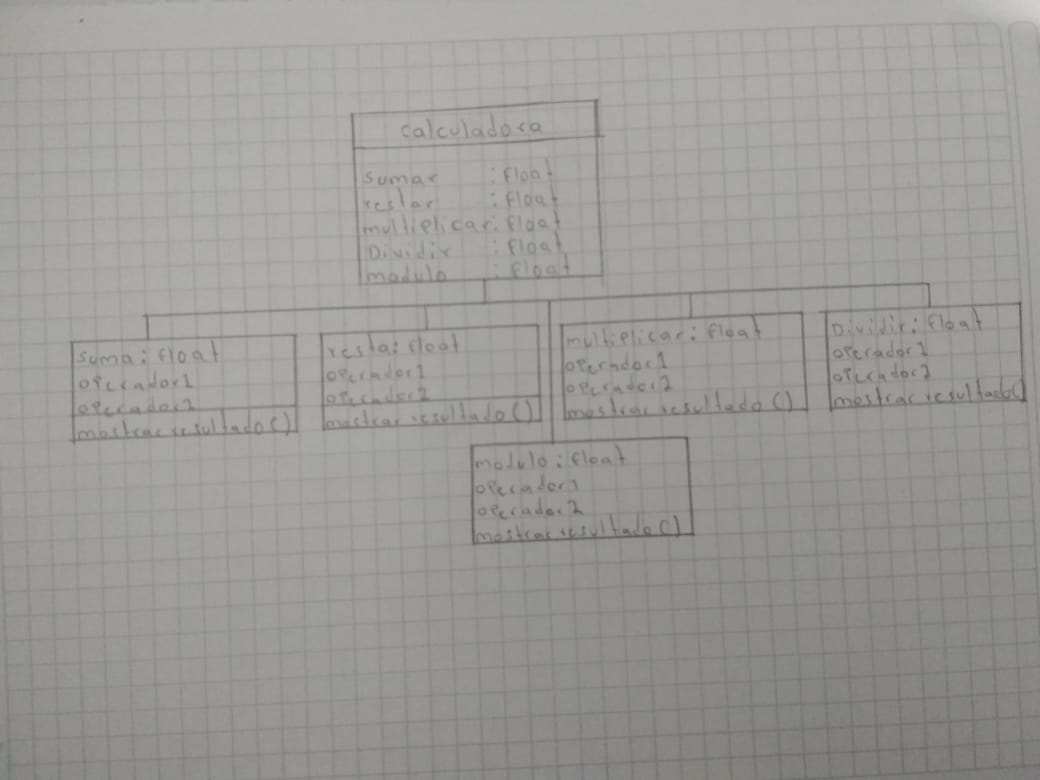 calculadora
sumar : float
restar : float
multiplicar: float
Dividir : float
modulo : float
suma: float
operador1
operador2
mostrar resultado()
resta: float
operador1
operador2
mostrar resultado()
multiplicar: float
operador1
operador2
mostrar resultado()
Dividir: float
operador1
operador2
mostrar resultado()
modulo: float
operador1
operador2
mostrar resultado()